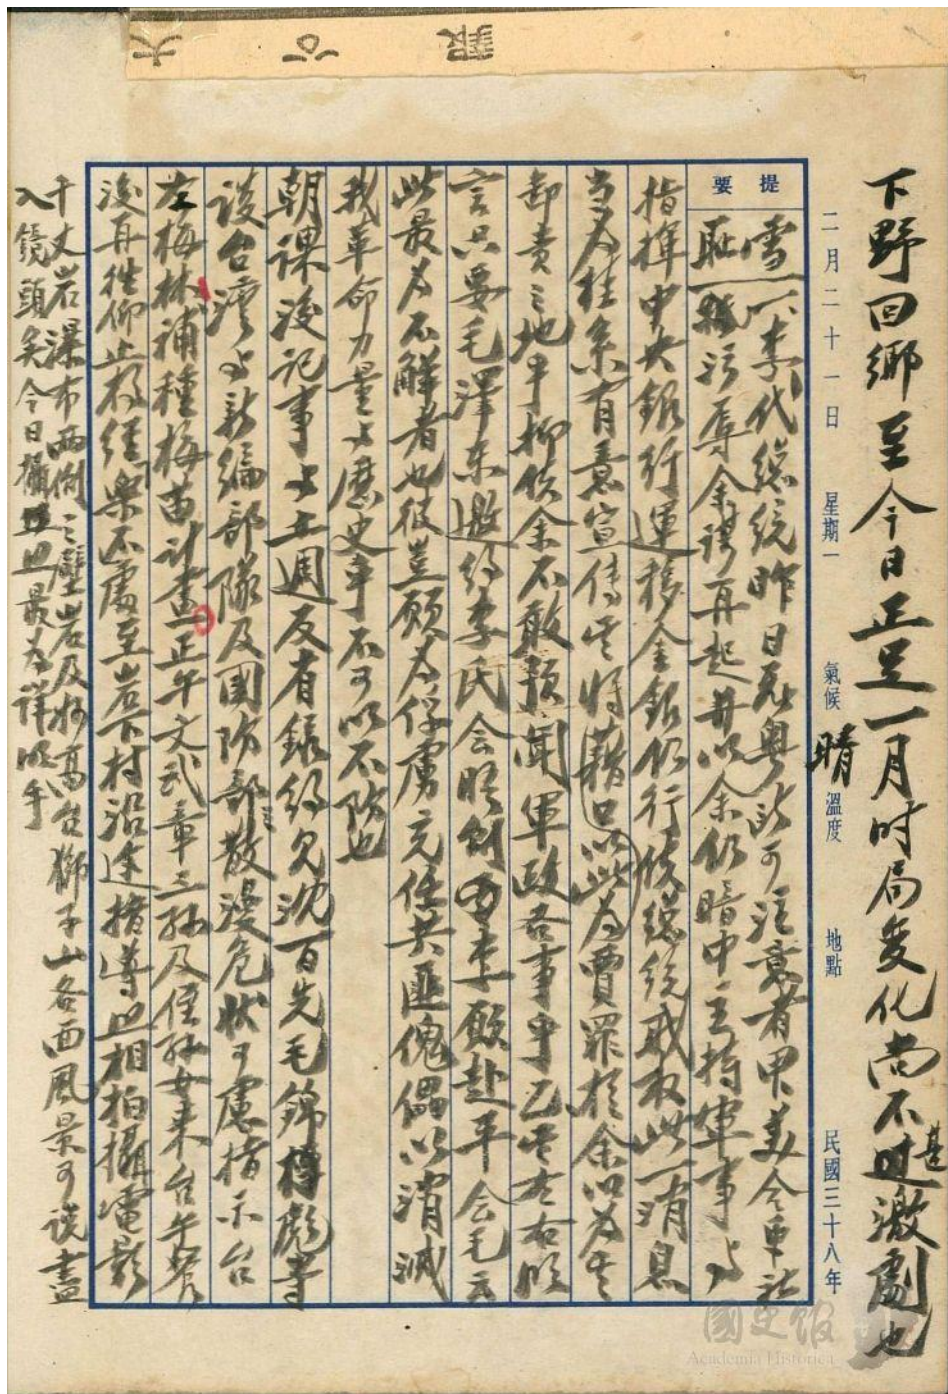 大公報
下野回鄉至今日正足一月时局变化尚不甚过激劇也
二月二十一日 星期一 氣候 晴 溫度 地點 民國三十八年
提要
雪恥 一、李代總統昨日飛粤 可注意者甲、美合众社
污辱余謀再起并以余仍暗中主持軍事与
指揮中央銀行運移金銀仍行使總統戒权此一消息
当为桂系有意宣传其将藉口以此为賣罪於余以为其
卸責之地乎抑供余不敢預聞軍政各事乎乙其左右順
言只要毛澤东邀约李氏会晤 李願赴平会毛云
此最为不解者也彼豈願为俘虜充任共匪傀儡以消滅
我革命力量与歷史乎不可以不防也
朝課後記事与上週反省錄约见沈百先毛錦彪等
談台灣与新編部隊及國防部 散漫危狀可慮指示台
左梅林補種梅苗计畫正午文武章三孙及侄孙女来台午餐
後再往仰止 经樂不 至岩下村沿途指導照相拍攝電影
千丈岩瀑布两側之壁岩及妙高台獅子山各面風景可谈盡
入鏡頭矣今日攝照最为詳 乎
國史館
Academia Historica